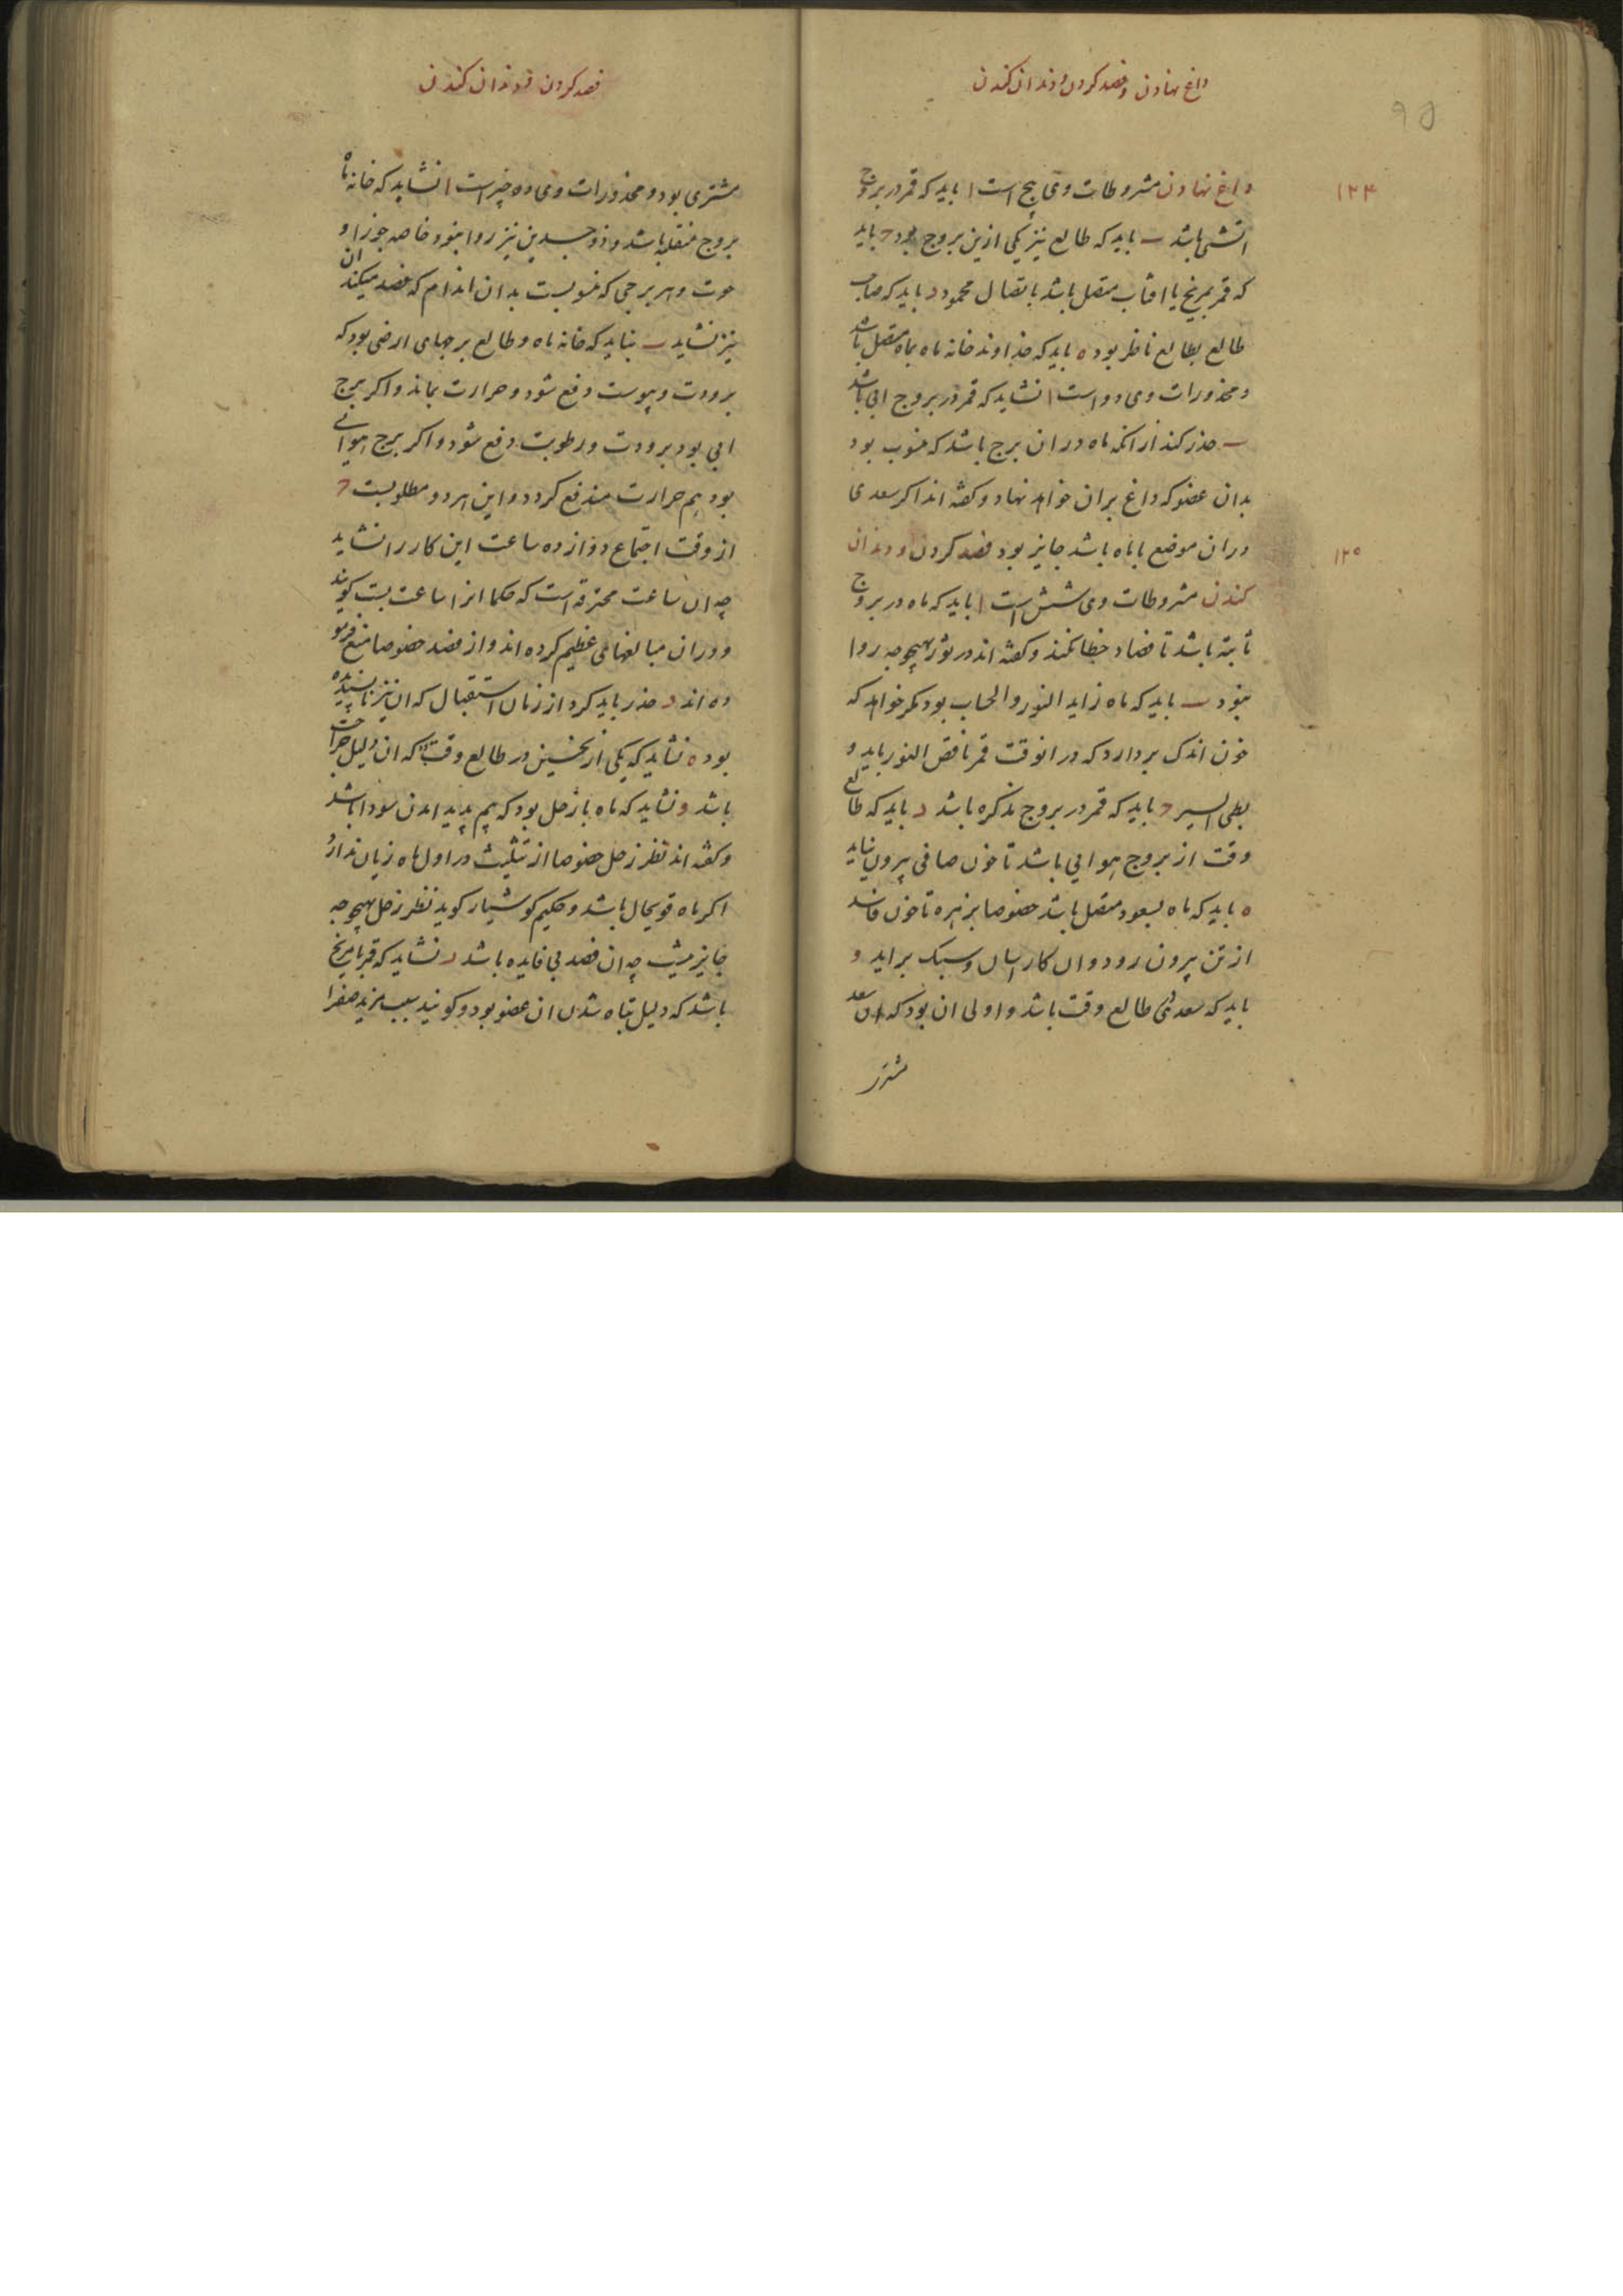 داغ نهادن و فصد کردن و دندان کندن
95
۱۲۴
داغ نهادن مشروطات وی پنج است ا باید که قمر در بروج
اتشی باشد ب باید که طالع نیز یکی ازین بروج بود ج باید
که قمر بمریخ یا افتاب متصل باشد باتصال محمود د باید که صاحب
طالع بطالع ناظر بود ه باید که خداوند خانه ماه بماه متصل باشد
و محذورات وی دو است ا نشاید که قمر در بروج ابی باشد
ب حذر کند از انکه ماه در ان برج باشد که منسوب بود
بدان عضو که داغ بران خواهد نهاد و کفته اند اکر سعدی
دران موضع با ماه باشد جایز بود فصد کردن و دندان
۱۲۵
کندن مشروطات وی شش است ا باید که ماه در بروج
ثابته باشد تا فصاد خطا نکند و کفته اند در ثور بهیچوجه روا
نبود ب باید که ماه زاید النور والحساب بود مکر خواهد که
خون اندک بردارد که در انوقت قمر ناقص النور باید و
بطی السیر ج باید که قمر در بروج مذکره باشد د باید که طالع
وقت از بروج هوایی باشد تا خون صافی بیرون نیاید
ه باید که ماه بسعود متصل باشد خصوصا بزهره تا خون فاسد
از تن بیرون رود و ان کار اسان و سبک براید و
باید که سعدی در طالع وقت باشد و اولی ان بود که ان سعد
مشتری
فصد کردن و دندان کندن
مشتری بود و محذورات وی ده چیز است ا نشاید که خانه ماه
بروج منقلبه باشد و ذوجسدین نیز روا نبود خاصه جوزا و
حوت و هر برجی که منسوبست بدان اندام که فصد میکند ان
نیز نشاید ب نباید که خانه ماه و طالع برجهای ارضی بود که
برودت و یبوست دفع شود و حرارت بماند و اکر برج
ابی بود برودت و رطوبت دفع شود و اکر برج هوائی
بود هم حرارت مندفع کردد و این هر دو مطلوبست ج
از وقت اجتماع دوازده ساعت این کار را نشاید
چه ان ساعت محترقه است که حکما انرا ساعت بست کویند
و دران مبالغهای عظیم کرده اند و از فصد خصوصا منع فرمو
ده اند د حذر باید کرد از زمان استقبال که ان نیز ناپسندیده
بود ه نشاید که یکی از نحسین در طالع وقت بود که ان دلیل جراحت
باشد و نشاید که ماه با زحل بود که بیم پدید امدن سودا باشد
و کفته اند نظر زحل خصوصا از تثلیث در اول ماه زیان ندارد
اکر ماه قویحال باشد و حکیم کوشیار کوید نظر زحل بهیچوجه
جایز نیست چه ان فصد بی فایده باشد ز نشاید که قمر با مریخ
باشد که دلیل تباه شدن ان عضو بود و کویند بسبب مزید صفرا